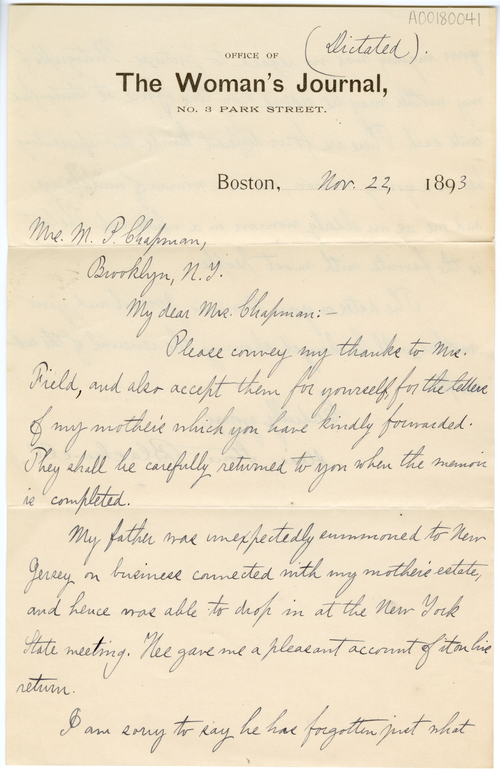 A00180041
(Dictated).
OFFICE OF
The Woman's Journal,
NO. 3 PARK STREET.
Boston, Nov. 22, 1893
Mrs. M. P. Chapman,
Brooklyn, N.Y.
My dear Mrs. Chapman:-
Please convey my thanks to Mrs.
Field, and also accept them for yourself, for the letters
of my mother's which you have kindly forwarded.
They shall be carefully returned to you when the memoir
is completed.
My father was unexpectedly summoned to New
Jersey on business connected with my mother's estate,
and hence was able to drop in at the New York
State meeting. Hee gave me a pleasant account of it on his
return.
I am sorry to say he has forgotten just what